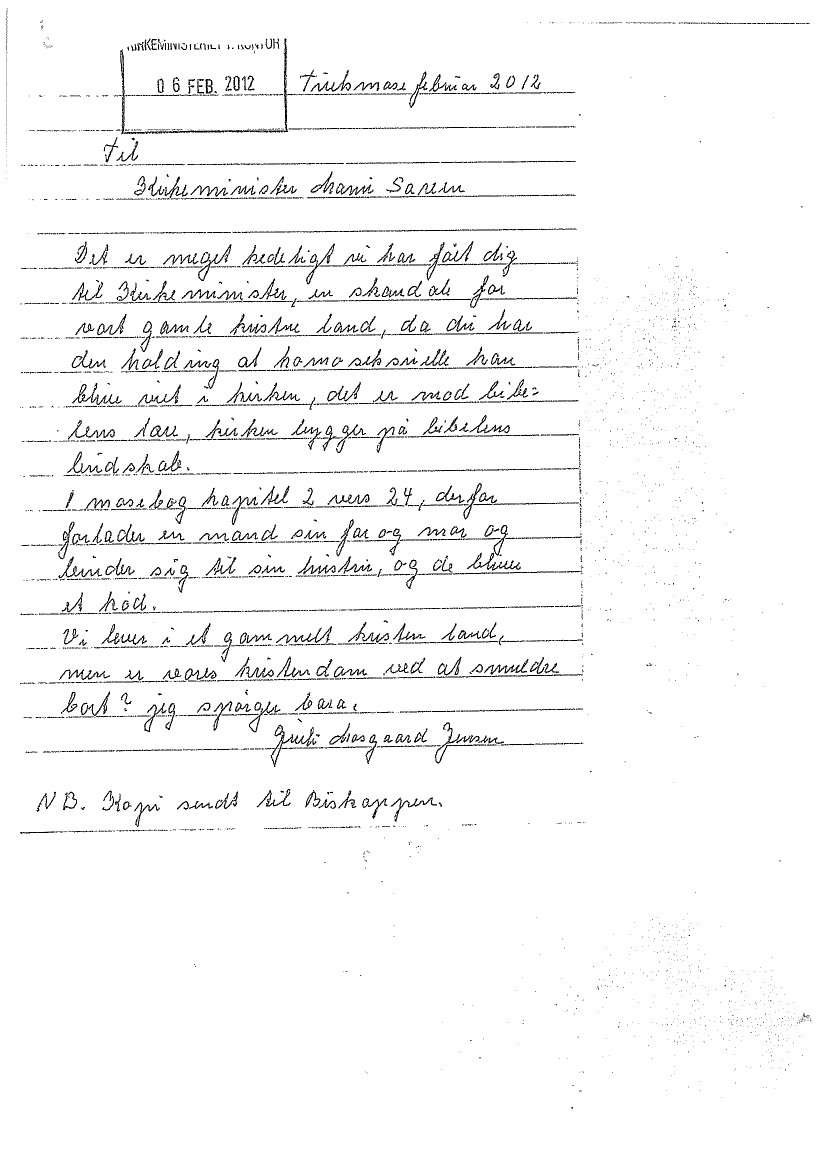 KIRKEMINISTERIET 1. KONTOR
06 FEB. 2012
februar 2012
Til
Kirkeminister Manu Sareen
Det er meget kedeligt vi har fået dig
til Kirkeminister, en skandale for
vort gamle kristne land, da du har
den holding at homoseksuelle kan
blive viet i kirken, det er mod bibe=
lens lære, kirken bygger på bibelens
budskab.
1 mosebog kapitel 2 vers 24, derfor
forlader en mand sin far og mor og
binder sig til sin hustru, og de bliver
et kød.
Vi lever i et gammelt kristen land,
men er vores kristendom ved at smuldre
bort? jeg spørger bara.
Mosgaard Jensen
NB. Kopi sendt til Biskoppen.